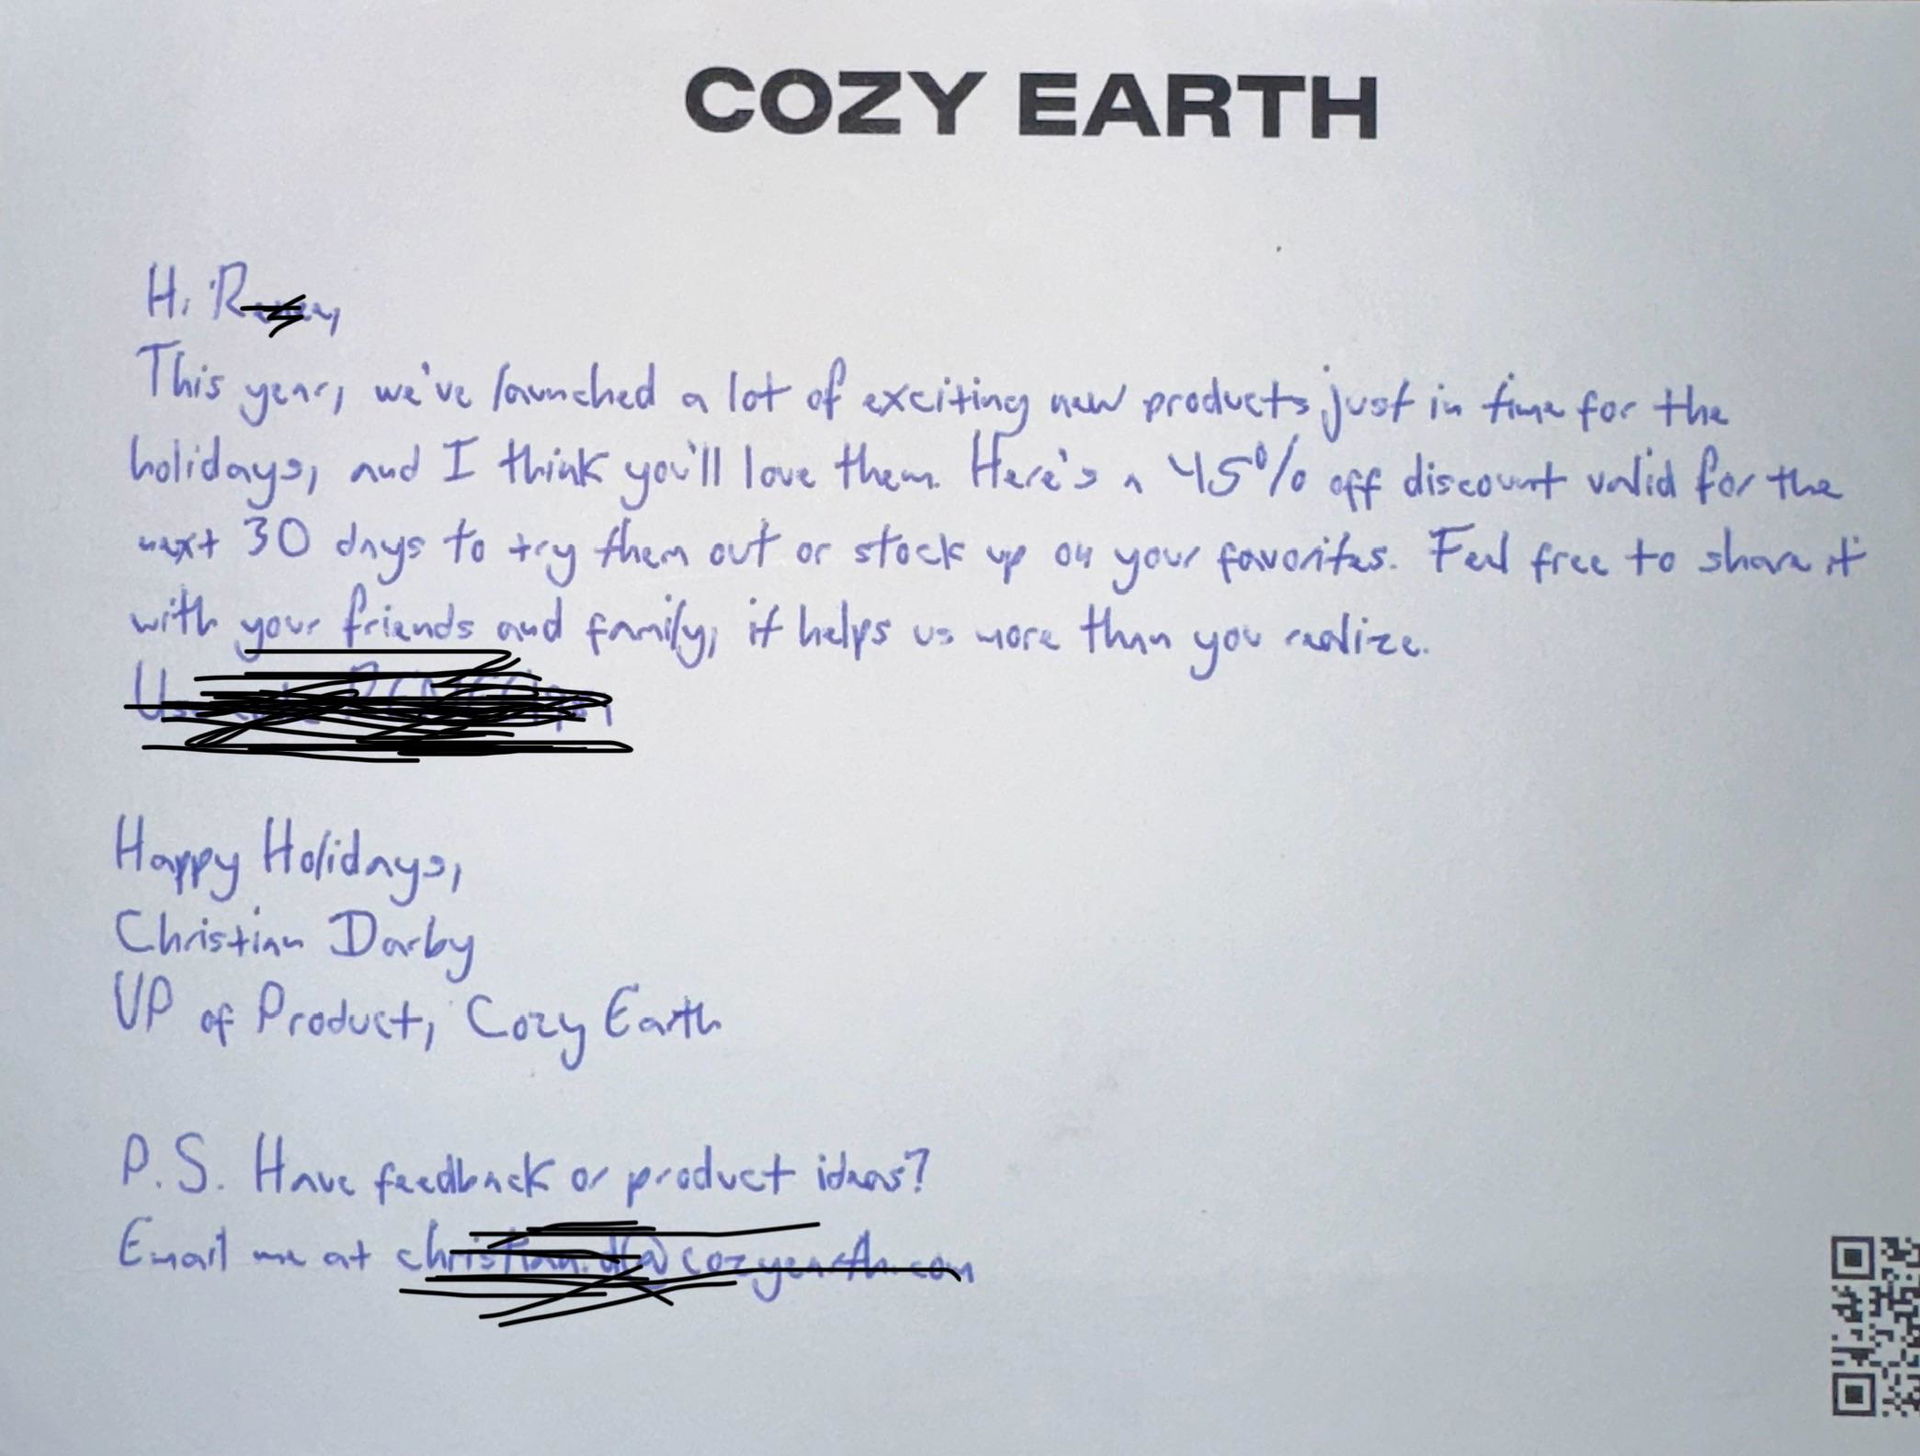 COZY EARTH
Hi
This year, we've launched a lot of exciting new products just in time for the
holidays, and I think you'll love them. Here's a 45% off discount valid for the
next 30 days to try them out or stock up on your favorites. Feel free to share it
with your friends and family, it helps us more than you realize.
Happy Holidays,
Christian Darby
VP of Product, Cozy Earth
P.S. Have feedback or product ideas?
Email me at